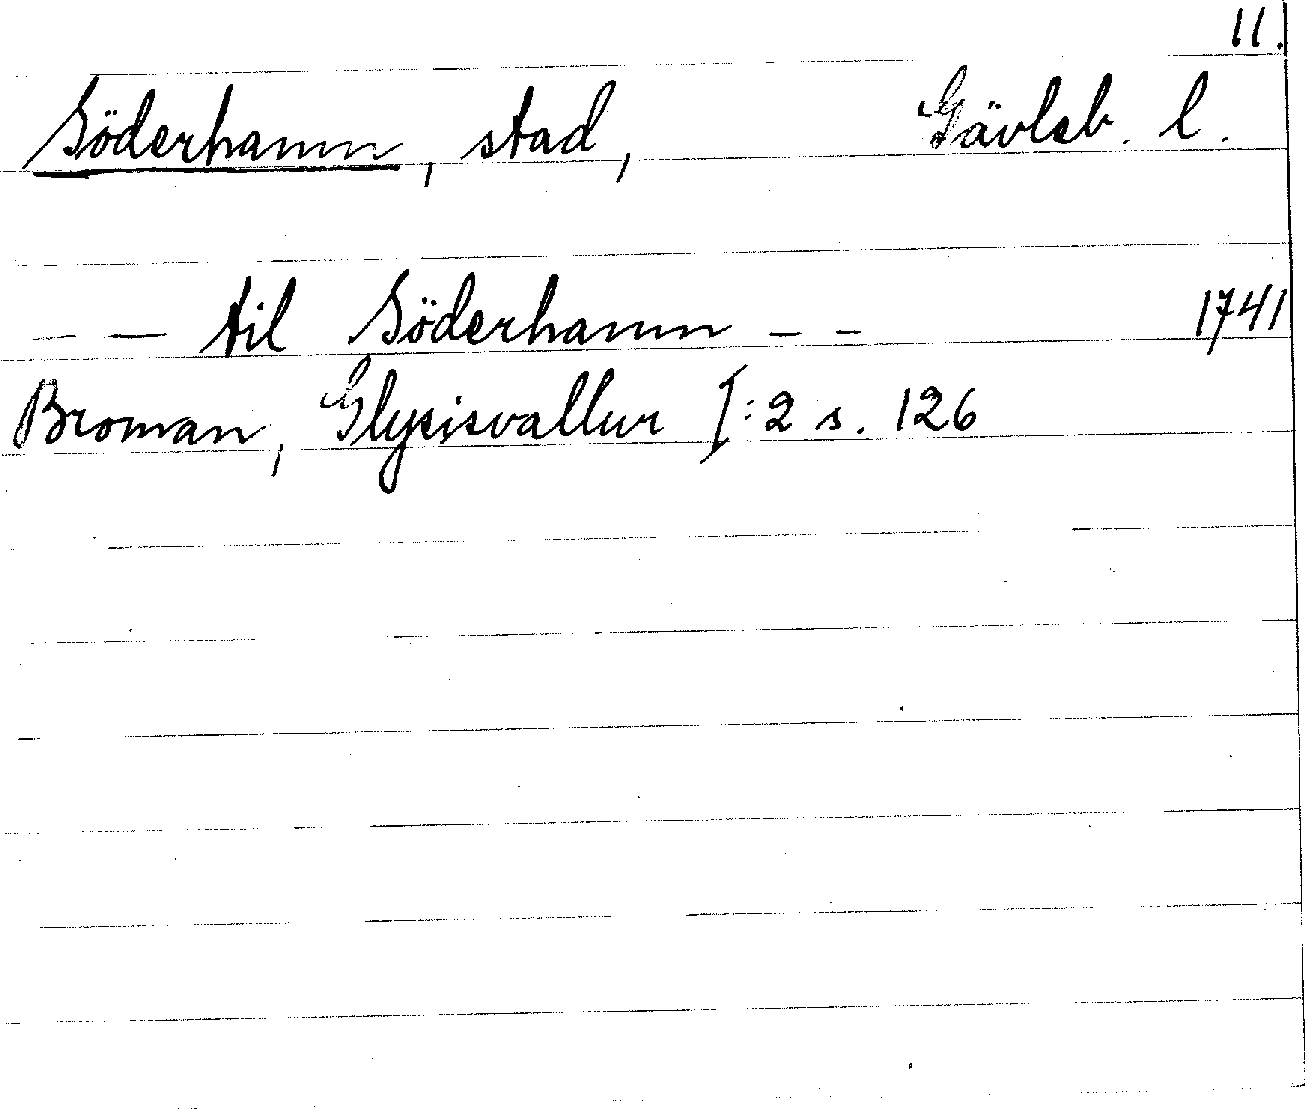 11.
Söderhamn, stad, Gävleb. l.
— — til Söderhamn — — 1741
Broman, Glysisvallur I:2 s. 126